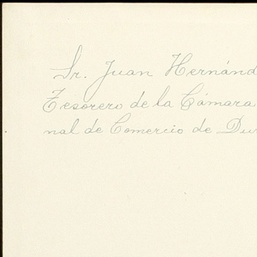 Sr. Juan Hernánd
Tesorero de la Cámara
nal de Comercio de Du